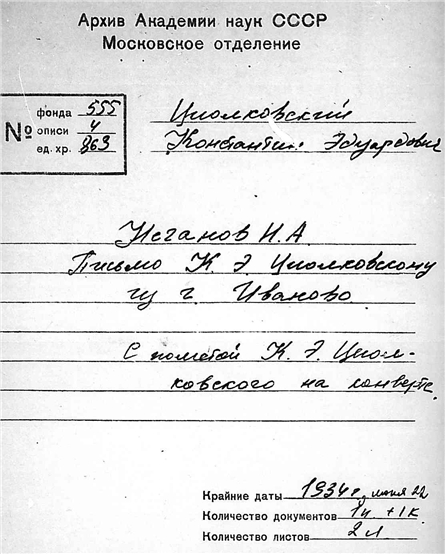 Архив Академии наук СССР
Московское отделение
№
фонда 555
описи 4
ед. хр. 863
Циолковский
Константин Эдуардович
И.А
Письмо К. Э. Циолковскому
из г. Иваново
С пометой К. Э. Циол-
ковского на конверте.
Крайние даты 1934 г, июня 22
Количество документов 1п +1к
Количество листов 2 л